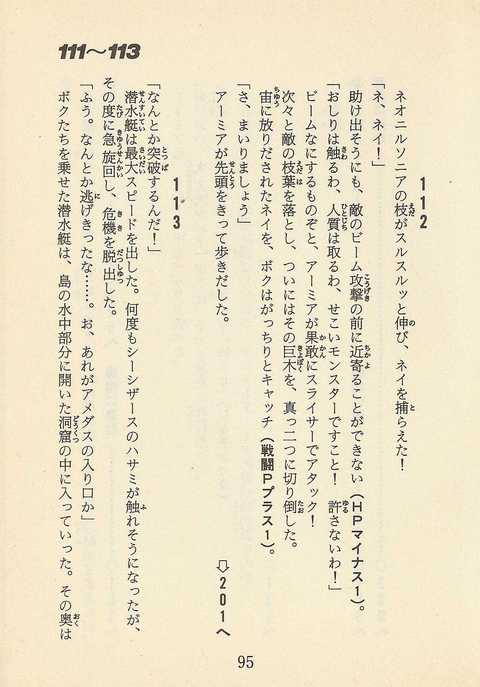 111〜113
112
ネオニルソニアの枝がスルスルッと伸び、ネイを捕らえた！
「ネ、ネイ！」
助け出そうにも、敵のビーム攻撃の前に近寄ることができない（HPマイナス1）。
「おしりは触るわ、人質は取るわ、せこいモンスターですこと！　許さないわ！」
ビームなにするものぞと、アーミアが果敢にスライサーでアタック！
次々と敵の枝葉を落とし、ついにはその巨木を、真っ二つに切り倒した。
宙に放りだされたネイを、ボクはがっちりとキャッチ（戦闘Pプラス1）。
「さ、まいりましょう」
アーミアが先頭をきって歩きだした。
⇨201へ
113
「なんとか突破するんだ！」
潜水艇は最大スピードを出した。何度もシーシザースのハサミが触れそうになったが、
その度に急旋回し、危機を脱出した。
「ふう。なんとか逃げきったな……。お、あれがアメダスの入り口か」
ボクたちを乗せた潜水艇は、島の水中部分に開いた洞窟の中に入っていった。その奥は
95